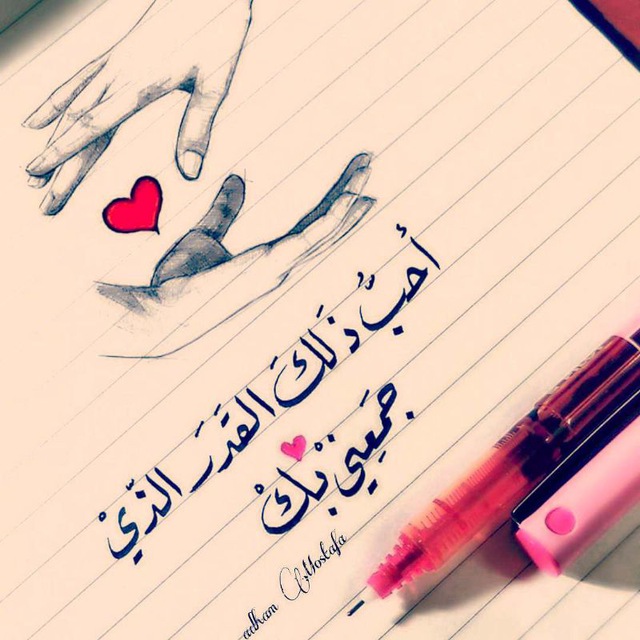 أحبُّ ذلَكَ القَدَرَ الذّيْ
جمَعِني بْكْ
adham Mostafa